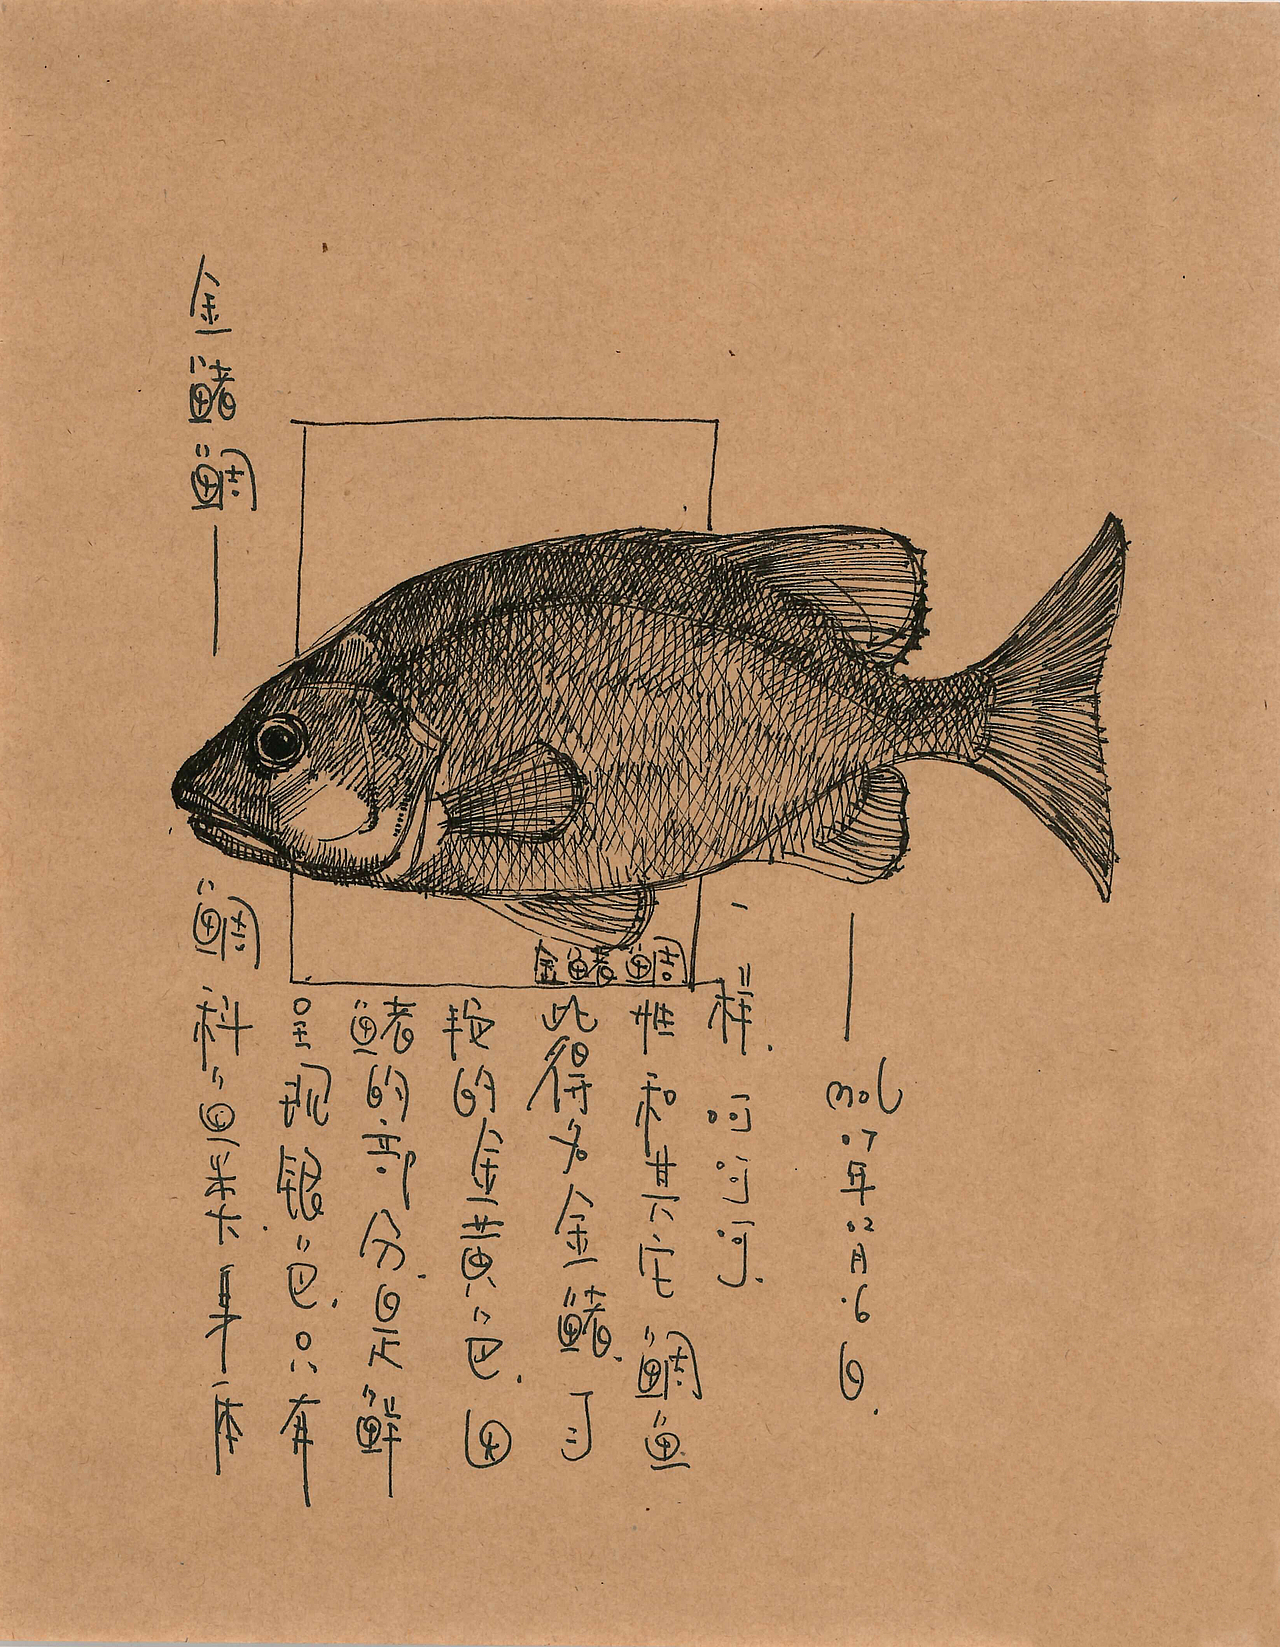 金鳍鲷——
金鳍鲷
鲷科鱼类.身体
呈现银色.只有
鳍的部分.是鲜
艳的金黄色.因
此得名金鳍.习
性和其它鲷鱼
一样.呵呵呵.
——mol 07年02月.6日.